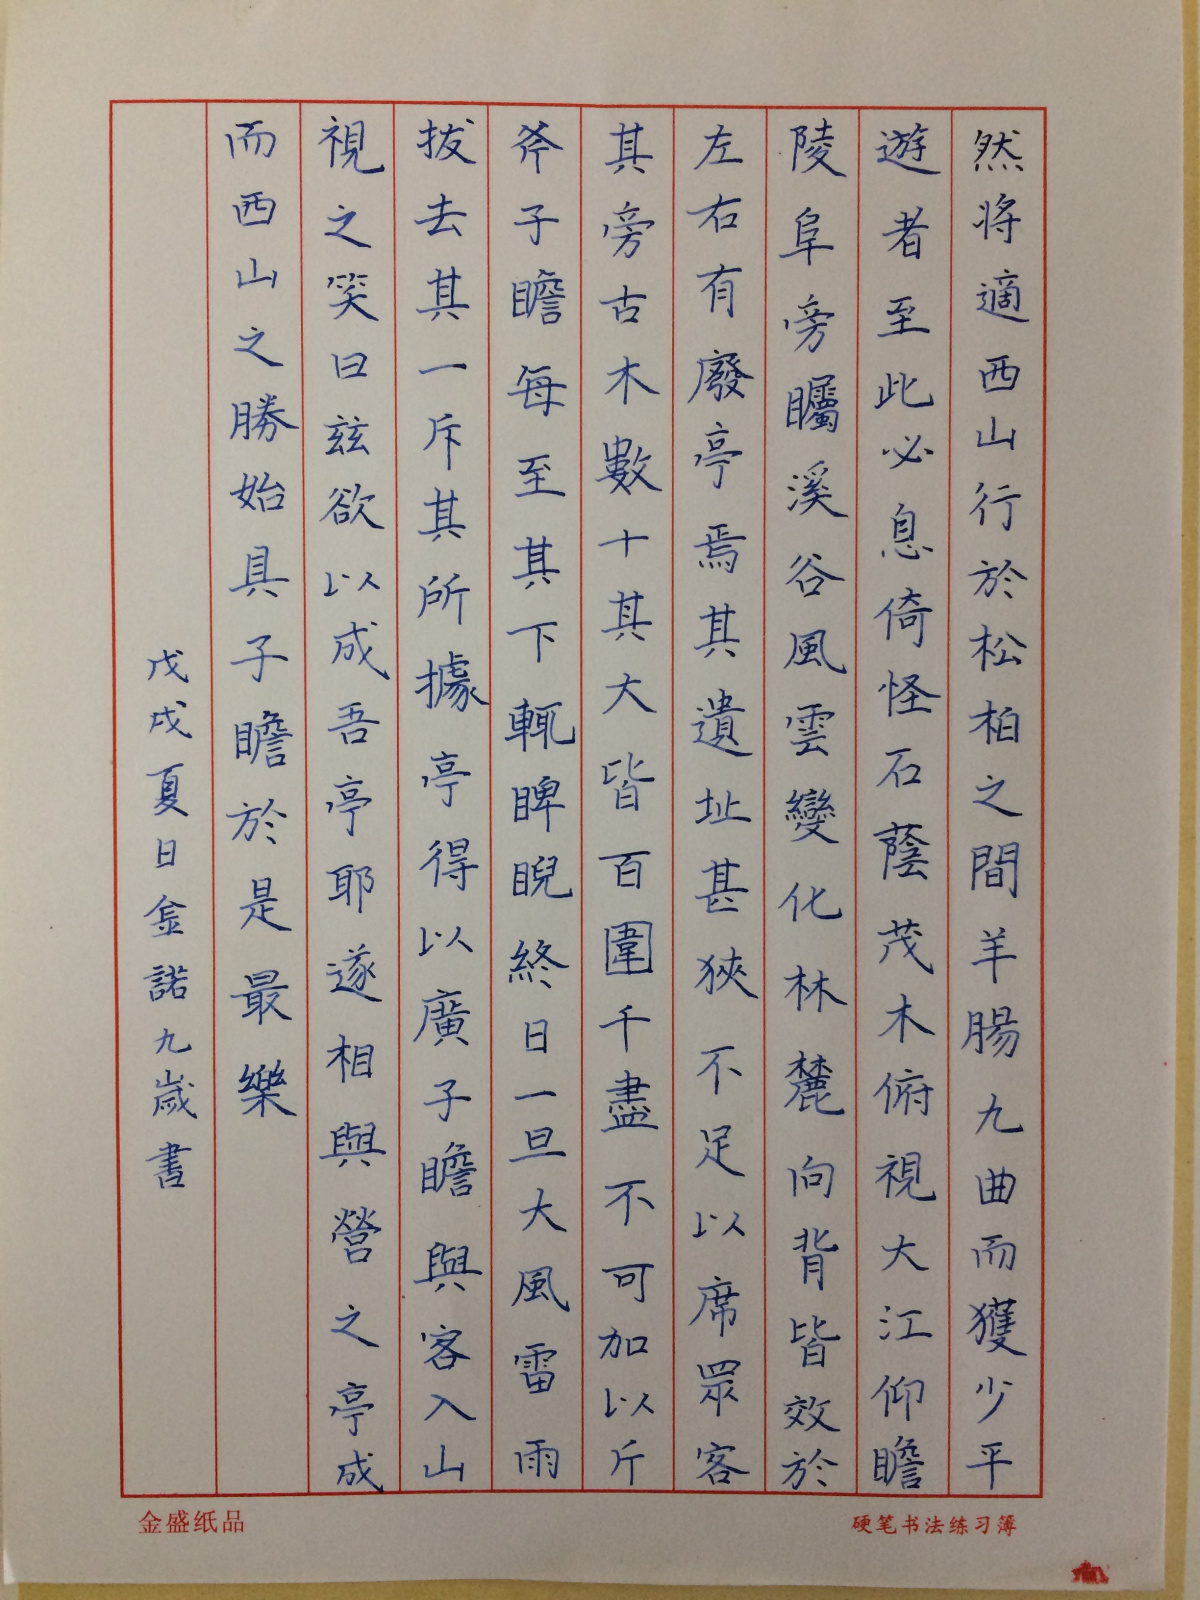 然将適西山行於松柏之間羊腸九曲而獲少平
遊者至此必息倚怪石蔭茂木俯視大江仰瞻
陵阜旁矚溪谷風雲變化林麓向背皆效於
左右有廢亭焉其遺址甚狹不足以席眾客
其旁古木數十其大皆百圍千盡不可加以斤
斧子瞻每至其下輒睥睨終日一旦大風雷雨
拔去其一斥其所據亭得以廣子瞻與客入山
視之笑曰兹欲以成吾亭耶遂相與營之亭成
而西山之勝始具子瞻於是最樂
戊戌夏日金諾九歲書
金盛纸品
硬笔书法练习簿